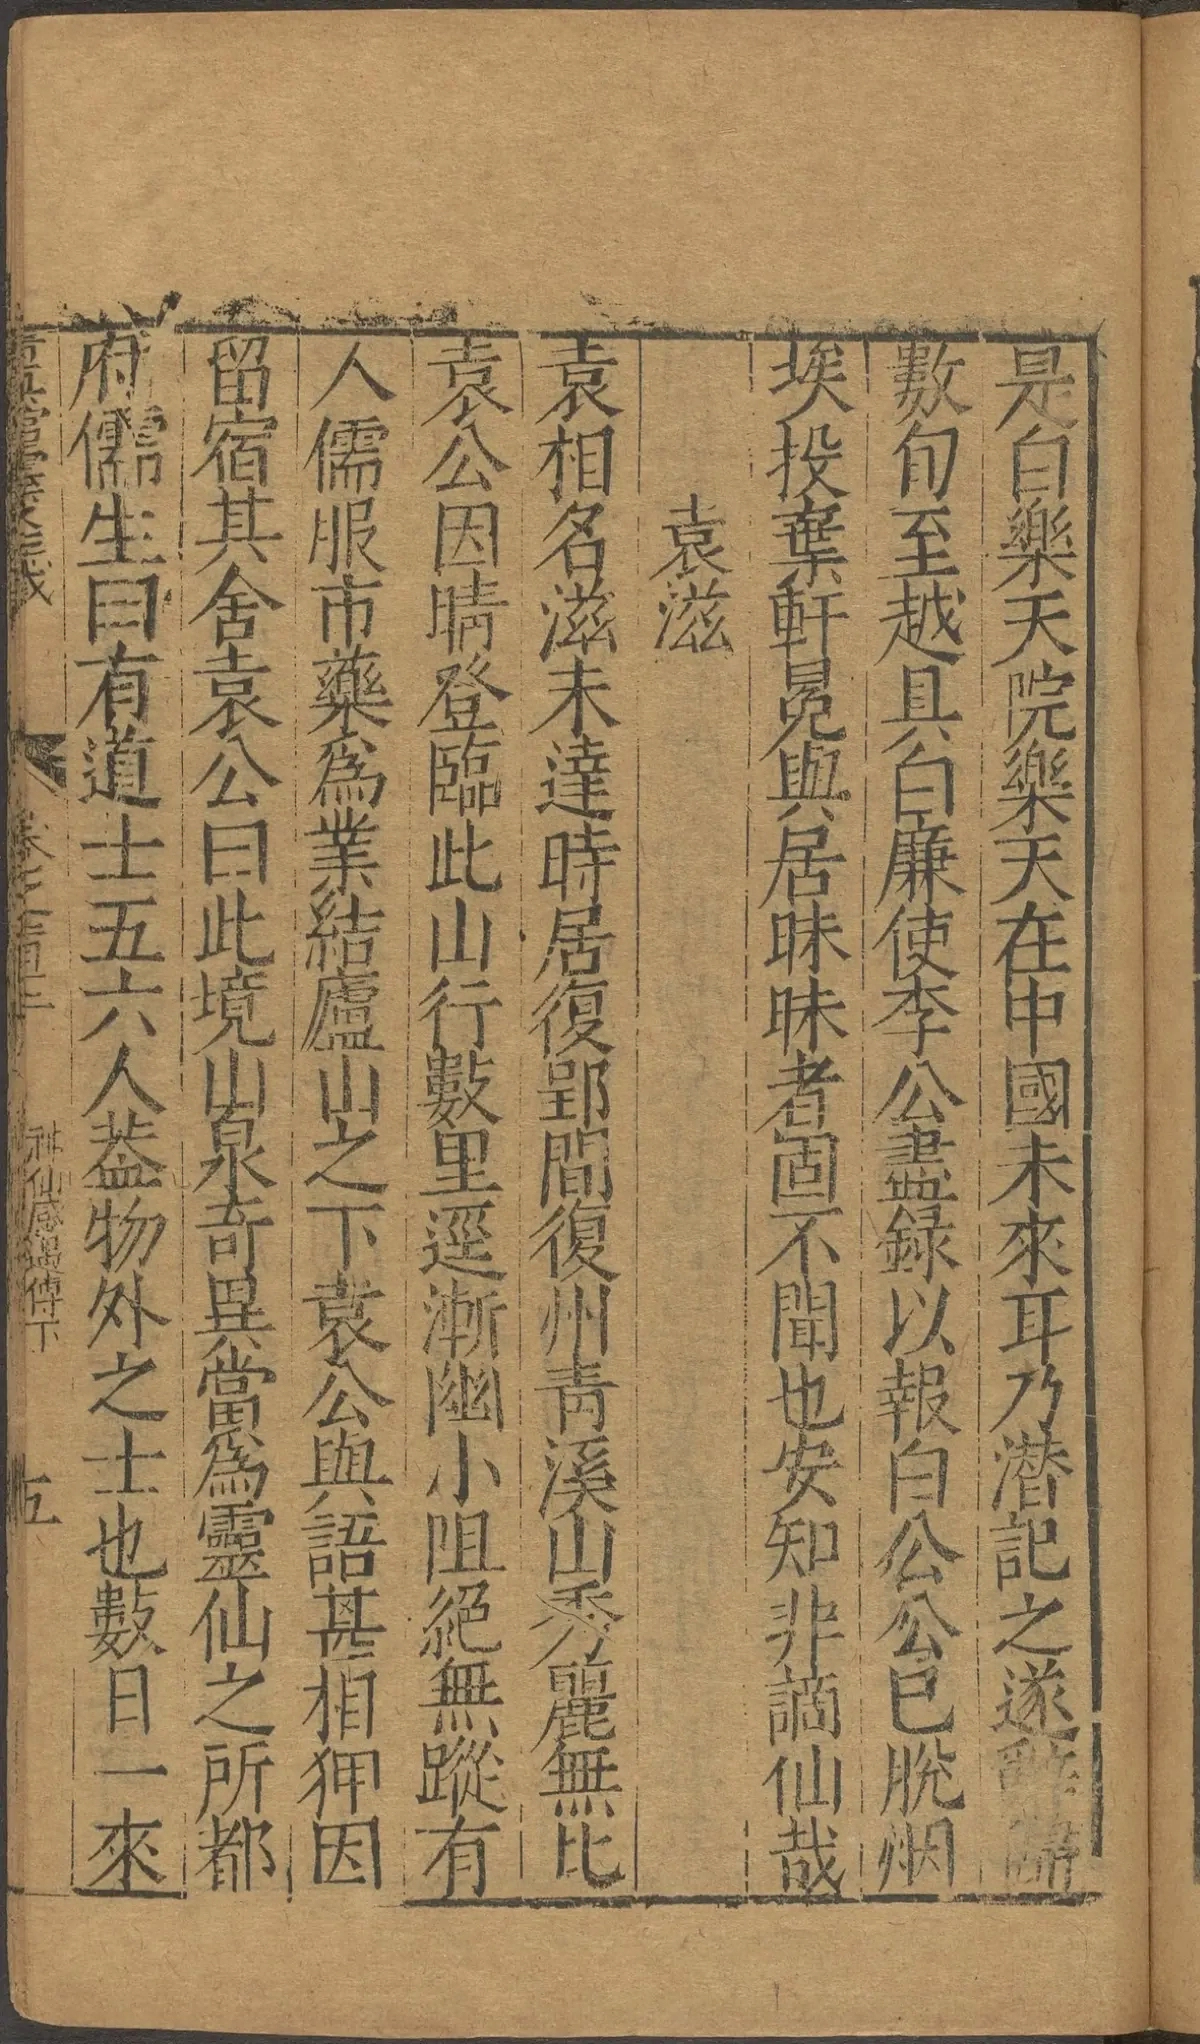 是白樂天院樂天在中國未來耳乃潛記之遂辭歸
數旬至越具白廉使李公盡録以報白公公已脫烟
埃投棄軒冕與居昧昧者固不聞也安知非謫仙哉
袁滋
袁相名滋未達時居復郢間復州青溪山秀麗無比
袁公因晴登臨此山行數里逕漸幽小阻絕無蹤有
人儒服市藥爲業結廬山之下袁公與語甚相狎因
留宿其舍袁公曰此境山泉奇異當爲靈仙之所都
府儒生曰有道士五六人葢物外之士也數日一來
神仙感遇傳下
五